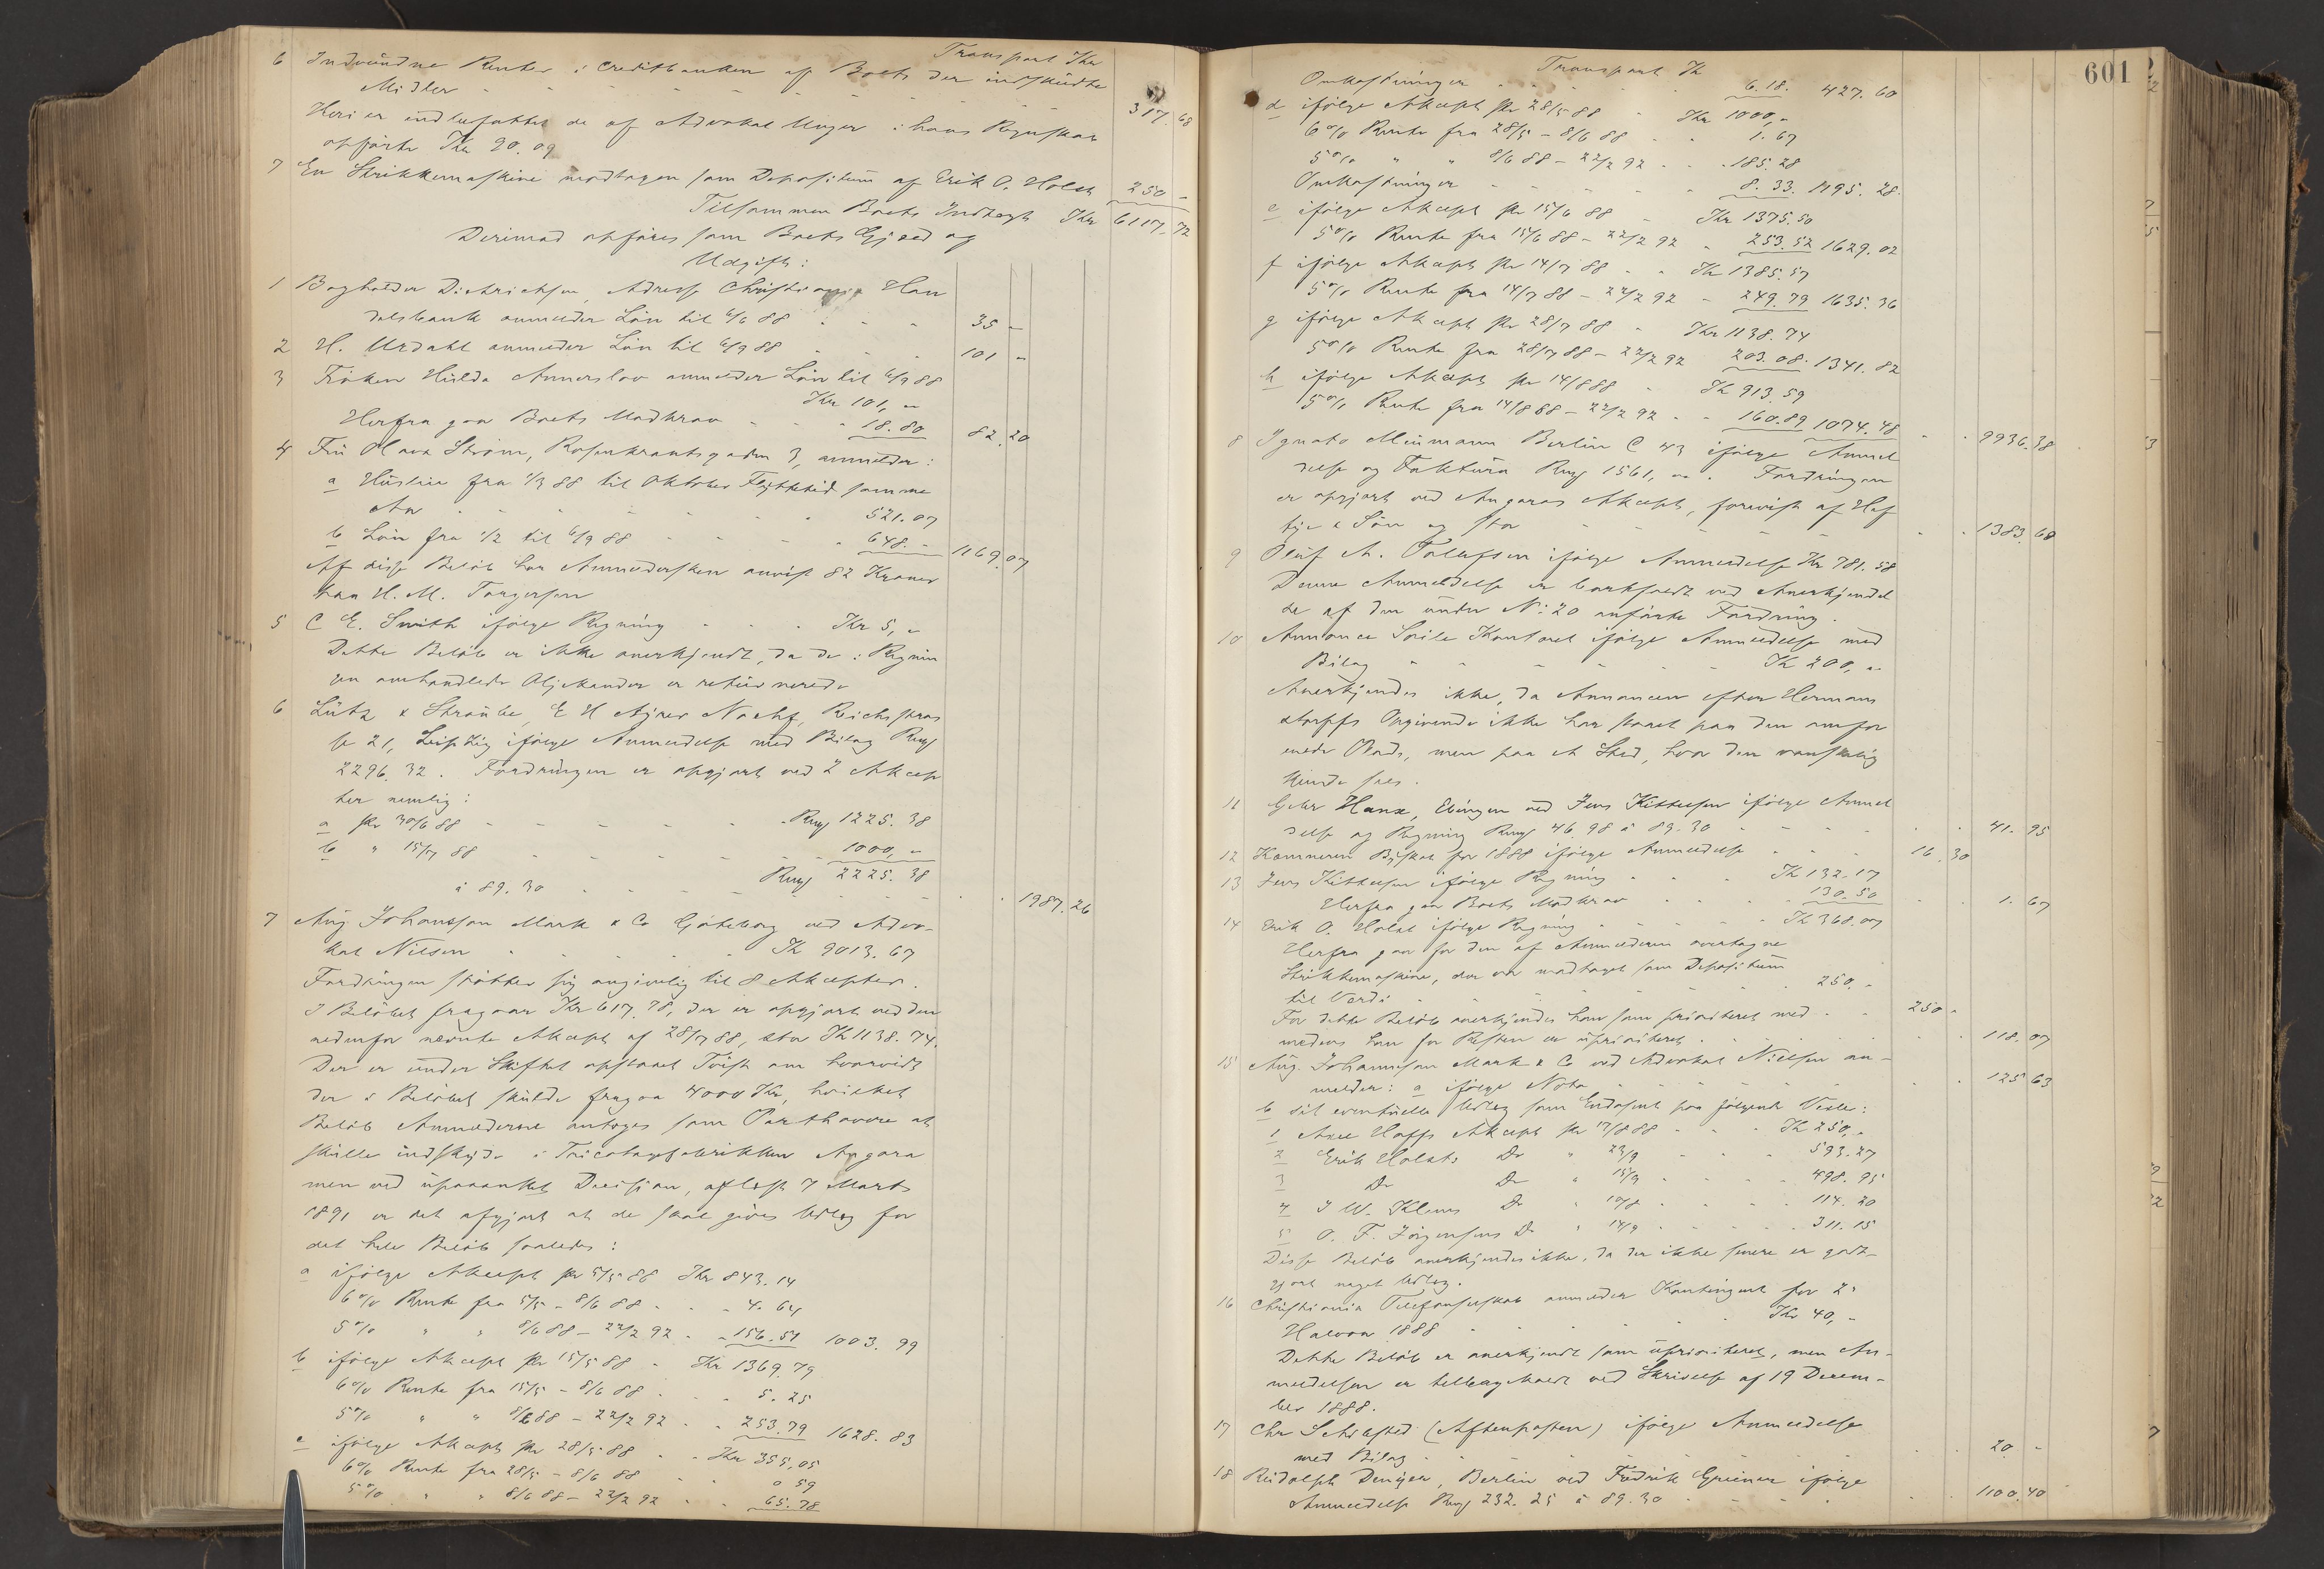 Transport Kr
6 Indvundne Renter i Creditbanken af Boets der indskudte
Midler - - - - - - - - 317.68
Heri er indbefattet de af Advokat Unger i hans Regnskab
opførte Kr 90.09
7 En Strikkemaskine modtagen som Depositum af Erik O. Holst 250 -
Tilsammen Boets Indtægt Kr 6117.72
Derimod opføres som Boets Gjæld og
Udgift:
1 Bogholder Diethrichsen, Adresse Christiania Han
delsbank anmelder Løn til 6/6 88 - - - 35 -
2 H. Urdahl anmelder Løn til 6/9 88 - - - 101 -
3 Frøken Hulda Annerslov anmelder Løn til 6/9 88
Kr 101, -
Herfra gaa Boets Modkrav - - - 18.80 82.20
4 Fru Olava Strøm, Rosenkrantsgaden 3, anmelder:
a Husleie fra 1/3 88 til Oktober Flyttetid samme
Aar - - - - - - 521.07
b Løn fra 1/2 til 6/9 88 - - - - 648. - 1169.07
Af disse Beløb har Anmeldersken anvist 82 Kroner
paa H. M. Torgersen
5 C E. Smith ifølge Regning - - - Kr 5, -
Dette Beløb er ikke anerkjendt, da de i Regnin
gen omhandlede Oljekander er returnerede
6 Lütz & Straube, E H Nachf, Reichsstras
se 21, Leipzig ifølge Anmeldelse med Bilag Rmf
2296.32. Fordringen er opgjort ved 2 Akcep
ter nemlig:
a pr 30/6 88 - - - - - - Rmf 1225.38
b " 15/7 88 - - - - - - 1000, -
Rmf 2225.38
à 89.30 - - - - - - - - 1987.26
7 Aug Johansson Mark & Co Gøteborg ved Advo-
kat Nilsen - - - - Kr 9013.67
Fordringen støtter sig angivelig til 8 Akcepter.
I Beløbet fragaar Kr 617.78, der er opgjort ved den
nedenfor nævnte Akcept af 28/7 88, stor Kr 1138.74.
Der er under Skiftet opstaaet Tvist om hvorvidt
der i Beløbet skulde fragaa 4000 Kr, hvilket
Beløb Anmelderne antoges som Parthavere at
skulle indskyde i Tricotagefabrikken Angora
men ved upaaanket Decision, aflest 7 Marts
1891 er det afgjort at de skal gives Udlæg for
det hele Beløb saaledes:
a ifølge Akcept pr 5/5 88 Kr 843.14
6% Rente fra 5/5 - 8/6 88 - - - 4.64
5% " " 8/6 88 - 22/2 92 - - 156.51 1003.99
b ifølge Akcept pr 15/5 88 - Kr 1369.79
6% Rente fra 15/5 - 8/6 88 - - - 5.25
5% " " 8/6 88 - 22/2 92 - - 253.79 1628.83
c ifølge Akcept pr 28/5 88 - - Kr 355,05
6% Rente fra 28/5 - 8/6 88 - - 0 59
5% " " 8/6 88 - 22/2 92 - - 65.78
601
Transport Kr
Omkostninger - - - - 6.18. 427.60
d ifølge Akcept pr 28/5 88 - Kr 1000, -
6% Rente fra 28/5 - 8/6 88 - - 1.67
5% " " 8/6 88 - 22/2 92 - - 185.28
Omkostninger - - - - - 8.33. 1195.28.
e ifølge Akcept pr 15/6 88 - Kr 1375.50
5% Rente fra 15/6 88 - 22/2 92 - 253.52 1629.02
f ifølge Akcept pr 14/7 88 - - Kr 1385.57
5% Rente fra 14/7 88 - 22/2 92 - 249.79 1635.36
g ifølge Akcept pr 28/7 88 - Kr 1138.74
5% Rente fra 28/7 88 - 22/2 92 203.08. 1341.82
h ifølge Akcept pr 14/8 88 - Kr 913.59
5% Rente fra 14/8 88 - 22/2 92 - - 160.89 1074.48 - - 9936.38
8 Ignatz Neumann Berlin C 43 ifølge Anmel
delse og Faktura Rmf 1561, -. Fordringen
er opgjort ved Angoras Akcept, forevist af Hef
tye & Søn og stor - - - - - - - 1383.68
9 Oluf A. Tolufsen ifølge Anmeldelse Kr 781.58
Denne Anmeldelse er bortfaldt ved Anerkjendel
se af den under No 20 anførte Fordring.
10 Annonce Soile Kontoret ifølge Anmeldelse med
Bilag - - - - - - Kr 200, -
Anerkjendes ikke, da Annoncen efter Hermans
Opgivende ikke har staaet paa den omfor
enede Plads, men paa et Sted, hvor den vanskelig
kunde sees.
11 Gebr Hanx, Ebingen ved Jens Kittelsen ifølge Anmel
delse og Regning Rmf 46.98 à 89.30 - - - - 41.95
12 Kæmneren Byskat for 1888 ifølge Anmeldelse - - - 16.30
13 Jens Kittelsen ifølge Regning - - - Kr 132.17
Herfra gaa Boets Modkrav - - - - 130.50 - - 1.67
14 Erik O. Holst ifølge Regning - - - - Kr 368.07
Herfra gaar for den af Anmelderen overtagne
Strikkemaskine, der var modtaget som Depositum
til Værdi - - - - - - - 250. -
For dette Beløb anerkjendes han som prioriteret med - - 250 -
medens han for Resten er uprioriteret - - - - - 118.07
15 Aug. Johannson Mark & C ved Advokat Nielsen an-
melder: a ifølge Nota - - - - - - 125.63
b sit eventuelle Udlæg som Endosent paa følgende Vexler:
1 Axel Hoffs Akcept pr 17/8 88 - - - Kr 250, -
2 Erik Holsts Do " 23/9 - - - 593.27
3 Do Do " 15/9 - - - 498.95
4 J W. Klems Do " 10/8 - - - 114.20
5 O. F. Jørgensens Do " 14/9 - - - 311.15
Disse Beløb anerkjendes ikke, da der ikke senere er godt-
gjort noget Udlæg.
16 Christiania Telefonselskab anmelder Kontingent for 2.
Halvaar 1888 - - - - - - Kr 40, -
Dette Beløb er anerkjendt som uprioriteret, men An-
meldelsen er tilbagekaldt ved Skrivelse af 19 Decem-
ber 1888.
17 Chr Schibsted (Aftenposten) ifølge Anmeldelse
med Bilag - - - - - - - 20. -
18 Rudolph Denger, Berlin ved Fredrik Greiner ifølge
Anmeldelse Rmf 232.25 à 89.30 - - - - 1100.40